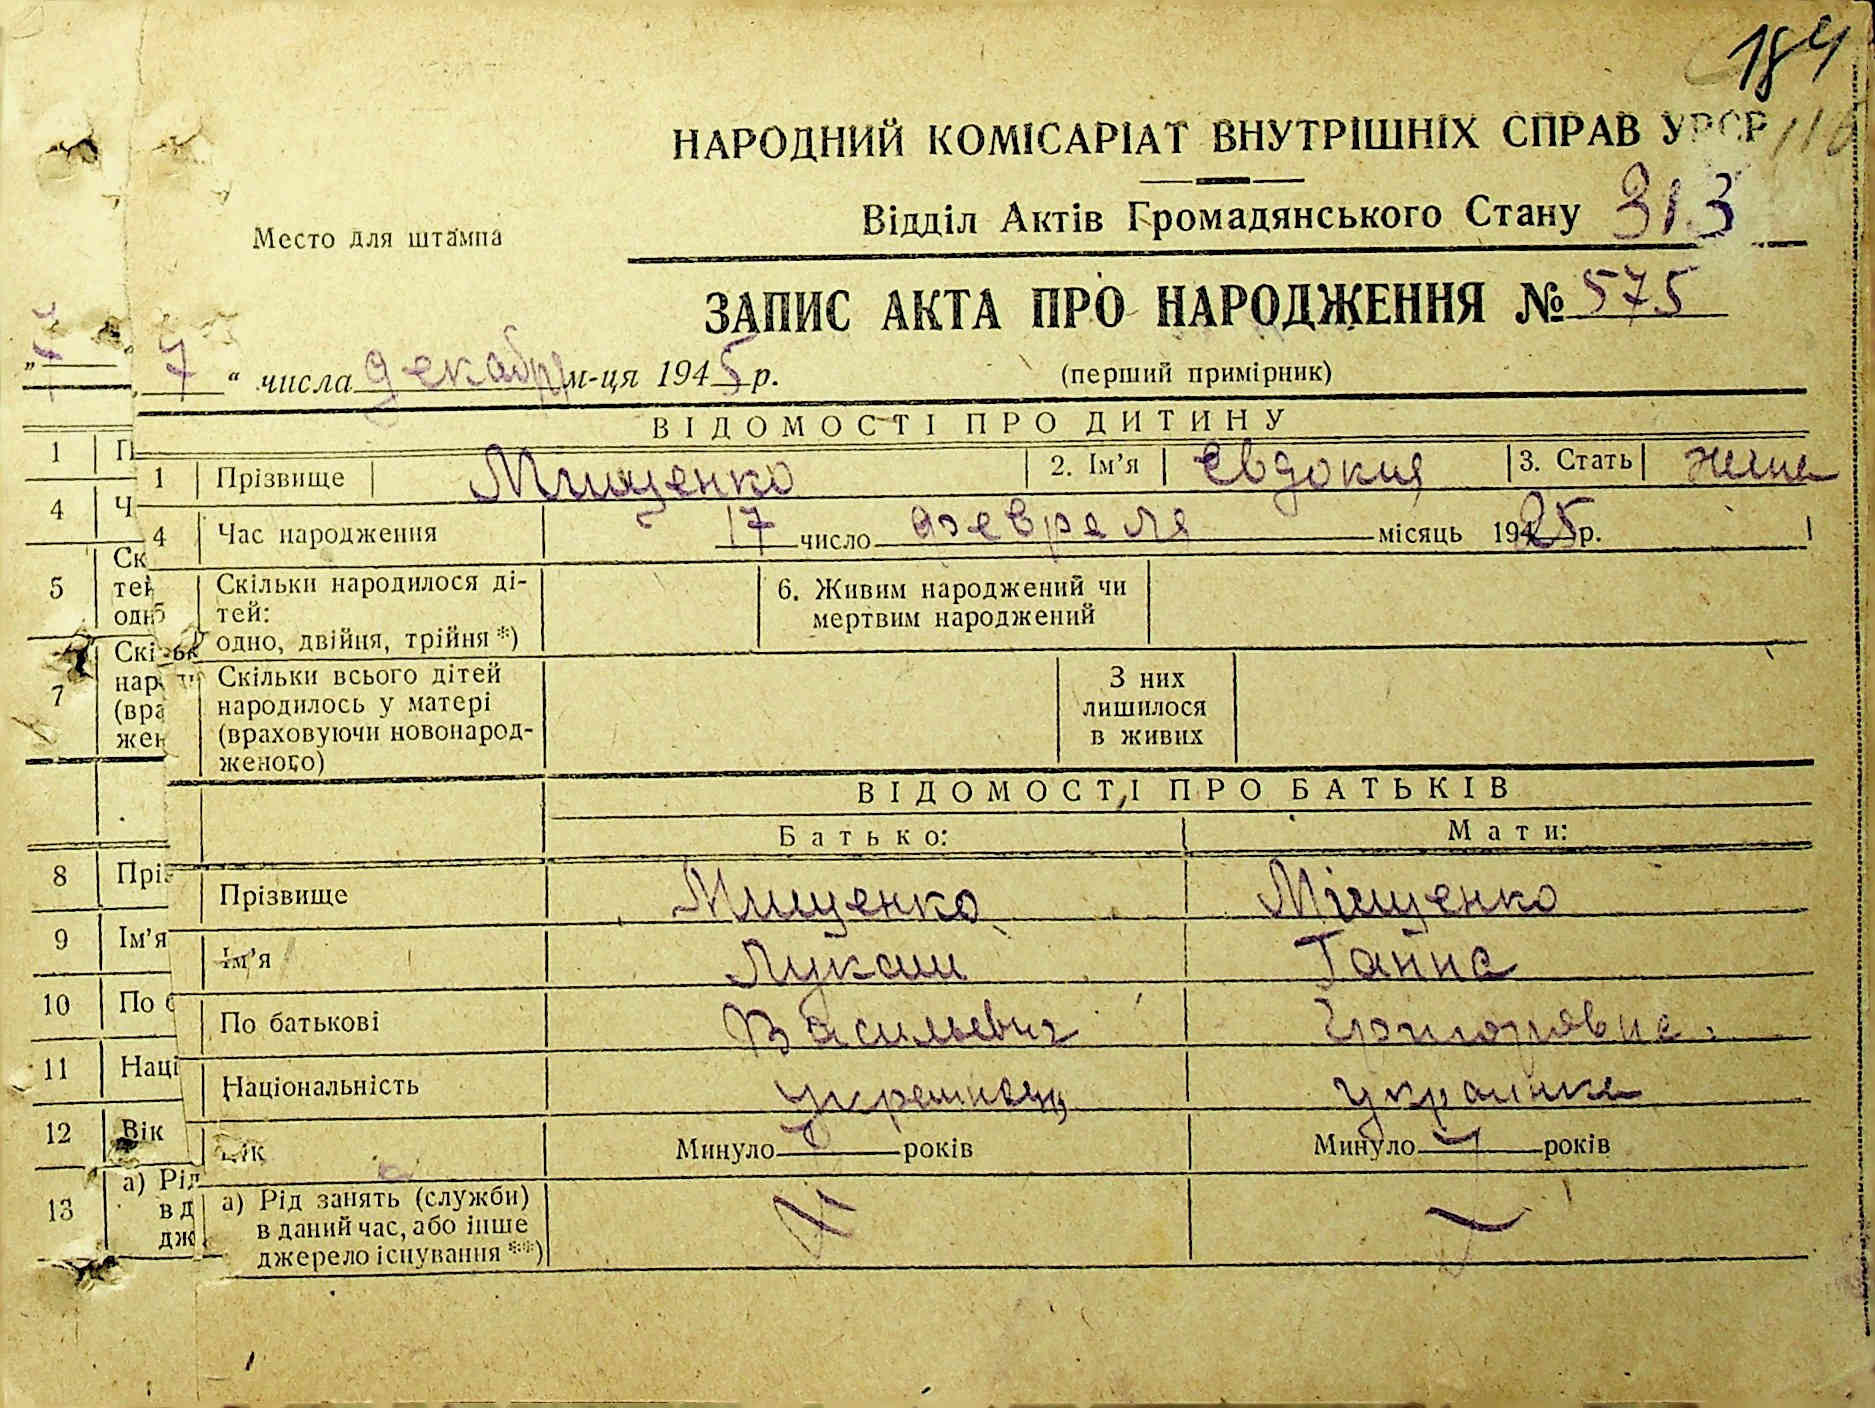 184
116
НАРОДНИЙ КОМІСАРІАТ ВНУТРІШНІХ СПРАВ УРСР
Место для штампа
Відділ Актів Громадянського Стану 313
ЗАПИС АКТА ПРО НАРОДЖЕННЯ № 575
„ 7 “ числа декабря м-ця 1945 р.
(перший примірник)
ВІДОМОСТІ ПРО ДИТИНУ
1 Прізвище Мищенко 2. Ім’я Евдокия 3. Стать женс
4 Час народження 17 число февраля місяць 1925 р.
5 Скільки народилося ді-
тей:
одно, двійня, трійня *)
6. Живим народжений чи
мертвим народжений
7 Скільки всього дітей
народилось у матері
(враховуючи новонарод-
женого)
З них
лишилося
в живих
ВІДОМОСТІ ПРО БАТЬКІВ
Батько: Мати:
8 Прізвище Мищенко Міщенко
9 Ім’я Лукаш Ганна
10 По батькові Васильевич Григоровна
11 Національність украинец украинка
12 Вік Минуло років Минуло років
13 а) Рід занять (служби)
в даний час, або інше
джерело існування **)